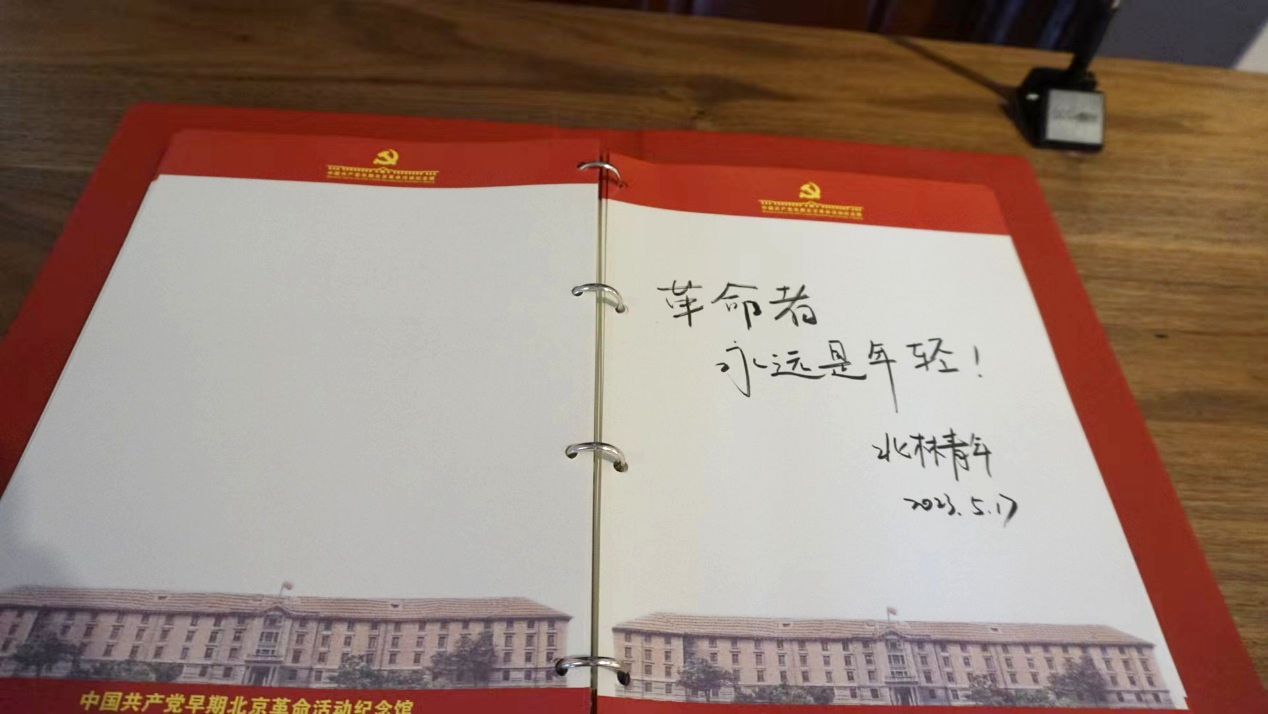 中国共产党早期北京革命活动纪念馆
中国共产党早期北京革命活动纪念馆
革命者
永远是年轻！
北林青年
2023.5.17
中国共产党早期北京革命活动纪念馆